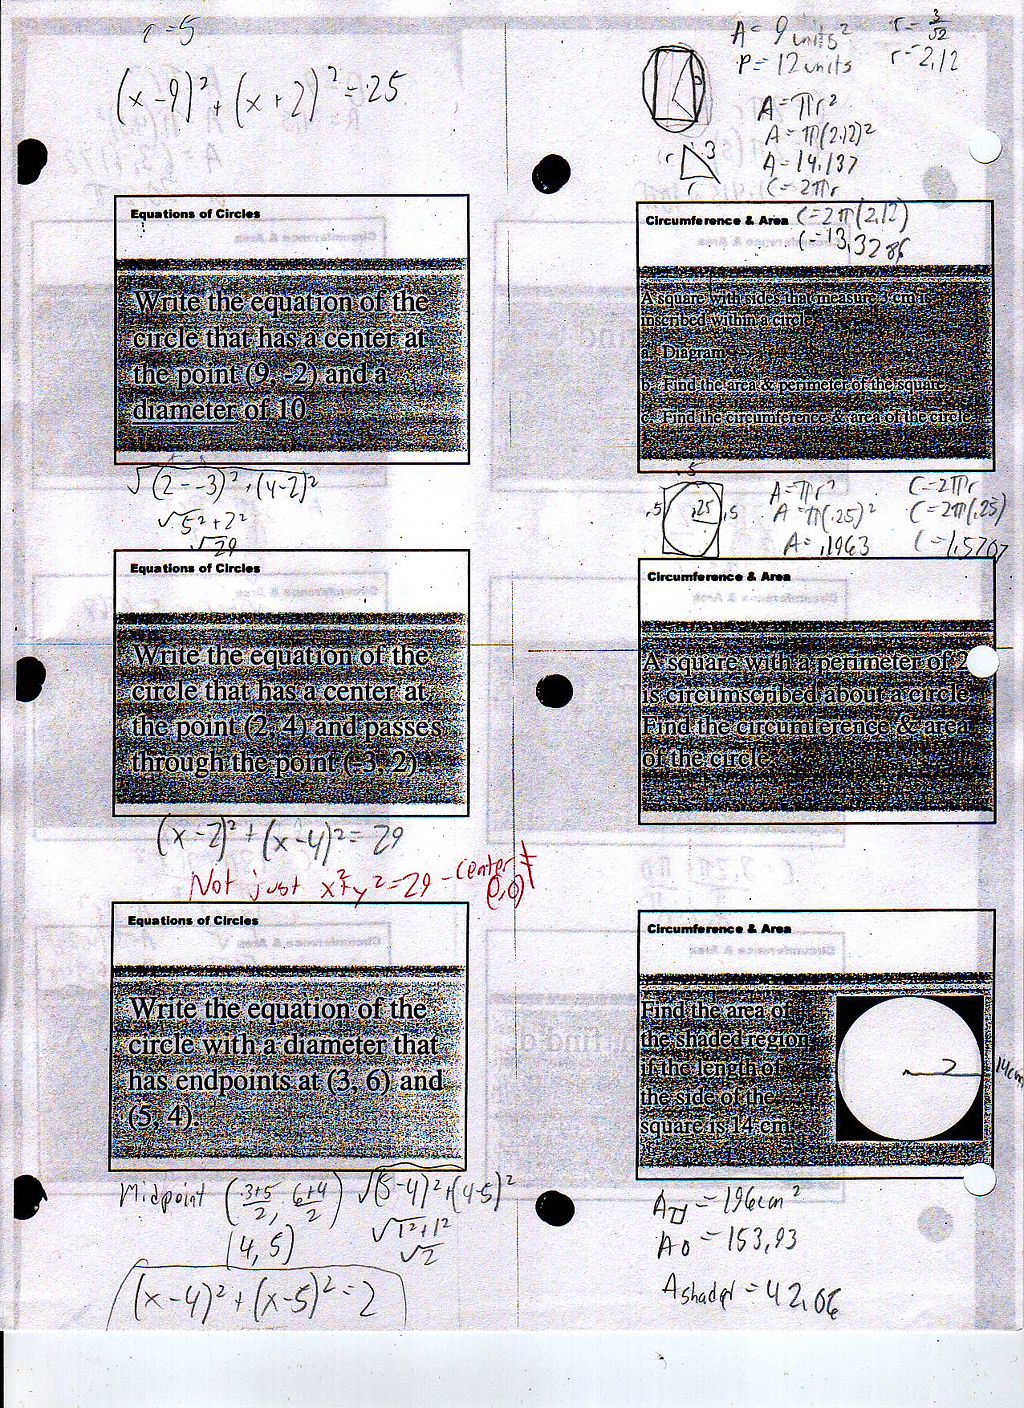 r=5
(x-9)²+(x+2)²=25
Equations of Circles
Write the equation of the
circle that has a center at
the point (9, -2) and a
diameter of 10
√(2--3)²+(4-2)²
√5²+2²
√29
Equations of Circles
Write the equation of the
circle that has a center at
the point (2, 4) and passes
through the point (-3, 2)
(x-2)²+(x-4)²=29
Not just x²+y²=29 - center ≠
(0,0)
Equations of Circles
Write the equation of the
circle with a diameter that
has endpoints at (3, 6) and
(5, 4).
Midpoint (3+5/2, 6+4/2) √(5-4)²+(4-5)²
(4,5) √1²+1²
√2
(x-4)²+(x-5)²=2
A= 9 units² r=3/√2
P= 12 units r=2.12
3
A=πr²
A=π(2.12)²
r 3 A=14.137
r C=2πr
Circumference & Area C=2π(2.12)
C=13.3286
A square with sides that measure 3 cm is
inscribed within a circle
a. Diagram
b. Find the area & perimeter of the square
c. Find the circumference & area of the circle
.5
A=πr² C=2πr
.5 .25 .5 A=π(.25)² C=2π(.25)
A=.1963 C=1.5707
Circumference & Area
A square with a perimeter of 2
is circumscribed about a circle
Find the circumference & area
of the circle.
Circumference & Area
Find the area of
the shaded region
if the length of
the side of the
square is 14 cm
14cm
A□=196cm²
A○=153.93
A shaded=42.06